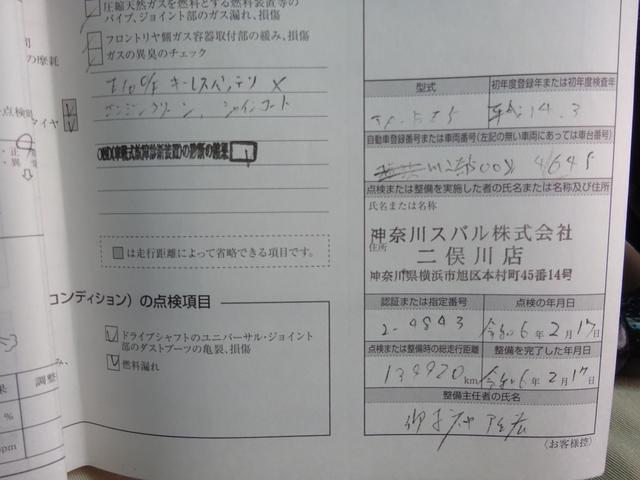 圧縮天然ガスを燃料とする燃料装置等の
パイプ、ジョイント部のガス漏れ、損傷
フロントリヤ側ガス容器取付部の緩み、損傷
ガスの異臭のチェック
の摩耗
キーレスバッテリ ×
エンジンクリーン、シャインコート
(OBD(車載式故障診断装置)の診断の結果
は走行距離によって省略できる項目です。
コンディション)の点検項目
ドライブシャフトのユニバーサル・ジョイント
部のダストブーツの亀裂、損傷
燃料漏れ
調整
%
ppm
型式
初年度登録年または初年度検査年
平成14.3
自動車登録番号または車両番号(左記の無い車両にあっては車台番号)
点検または整備を実施した者の氏名または名称及び住所
氏名または名称
神奈川スバル株式会社
住所
二俣川店
神奈川県横浜市旭区本村町45番14号
認証または指定番号
点検の年月日
2-4843
令和6年2月17日
点検または整備時の総走行距離
整備を完了した年月日
139920km
令和6年2月17日
整備主任者の氏名
(お客様控)